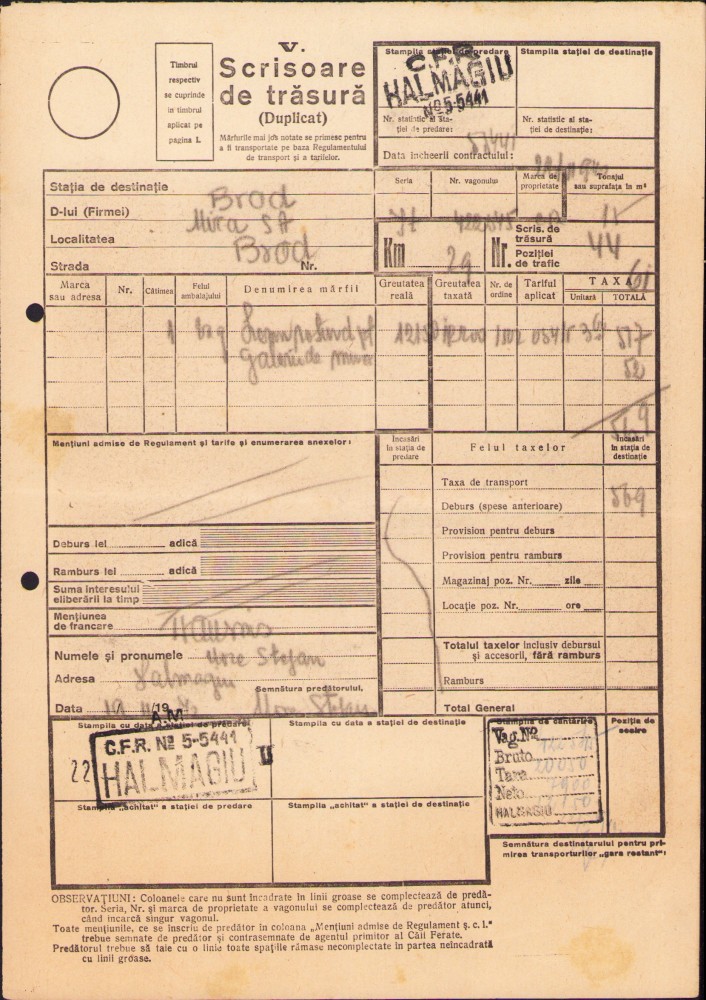 V.
Scrisoare
de trăsură
(Duplicat)
Mărfurile mai jos notate se primesc pentru
a fi transportate pe baza Regulamentului
de transport și a tarifelor.
Timbrul
respectiv
se cuprinde
în timbrul
aplicat pe
pagina I.
Stampila stației de predare
C.F.R.
HALMAGIU
Nº 5-5441
Stampila stației de destinație
Nr. statistic al sta-
ției de predare:
Nr. statistic al sta-
ției de destinație:
Data încheerii contractului:
Stația de destinație Brod
D-lui (Firmei) Mica SA
Localitatea Brod
Strada Nr.
Seria
Nr. vagonului
Marca de
proprietate
Tonajul
sau suprafața în m²
Km 29
Nr.
Scris. de
trăsură
Poziției
de trafic
44
Marca
sau adresa
Nr.
Câtimea
Felul
ambalajului
Denumirea mărfii
Greutatea
reală
Greutatea
taxată
Nr. de
ordine
Tariful
aplicat
TAXA
Unitară
TOTALĂ
1 vag
galerii de mina
517
52
569
Mențiuni admise de Regulament și tarife și enumerarea anexelor:
Încasări
în stația de
predare
Felul taxelor
Încasări
în stația de
destinație
Taxa de transport
569
Deburs (spese anterioare)
Provision pentru deburs
Provision pentru ramburs
Magazinaj poz. Nr. zile
Locație poz. Nr. ore
Totalul taxelor inclusiv debursul
și accesorii, fără ramburs
Ramburs
Total General
Deburs lei adică
Ramburs lei adică
Suma interesului
eliberării la timp
Mențiunea
de francare
Numele și pronumele Stefan
Adresa Halmagiu
Semnătura predătorului,
Data /19
Stampila cu data a stației de predare
A.M.
C.F.R. Nº 5-5441
22 HALMAGIU II
Stampila cu data a stației de destinație
Stampila „achitat" a stației de predare
Stampila „achitat" a stației de destinație
Stampila de cântărire
Vag. Nº
Bruto
Tara
Neto
HALMAGIU
Poziția de
sosire
Semnătura destinatarului pentru pri-
mirea transporturilor „gara restant":
OBSERVAȚIUNI: Coloanele care nu sunt încadrate în linii groase se complectează de predă-
tor. Seria, Nr. și marca de proprietate a vagonului se complectează de predător atunci,
când încarcă singur vagonul.
Toate mențiunile, ce se înscriu de predător în coloana „Mențiuni admise de Regulament ș. c. l."
trebue semnate de predător și contrasemnate de agentul primitor al Căii Ferate.
Predătorul trebue să taie cu o linie toate spațiile rămase necomplectate în partea neîncadrată
cu linii groase.